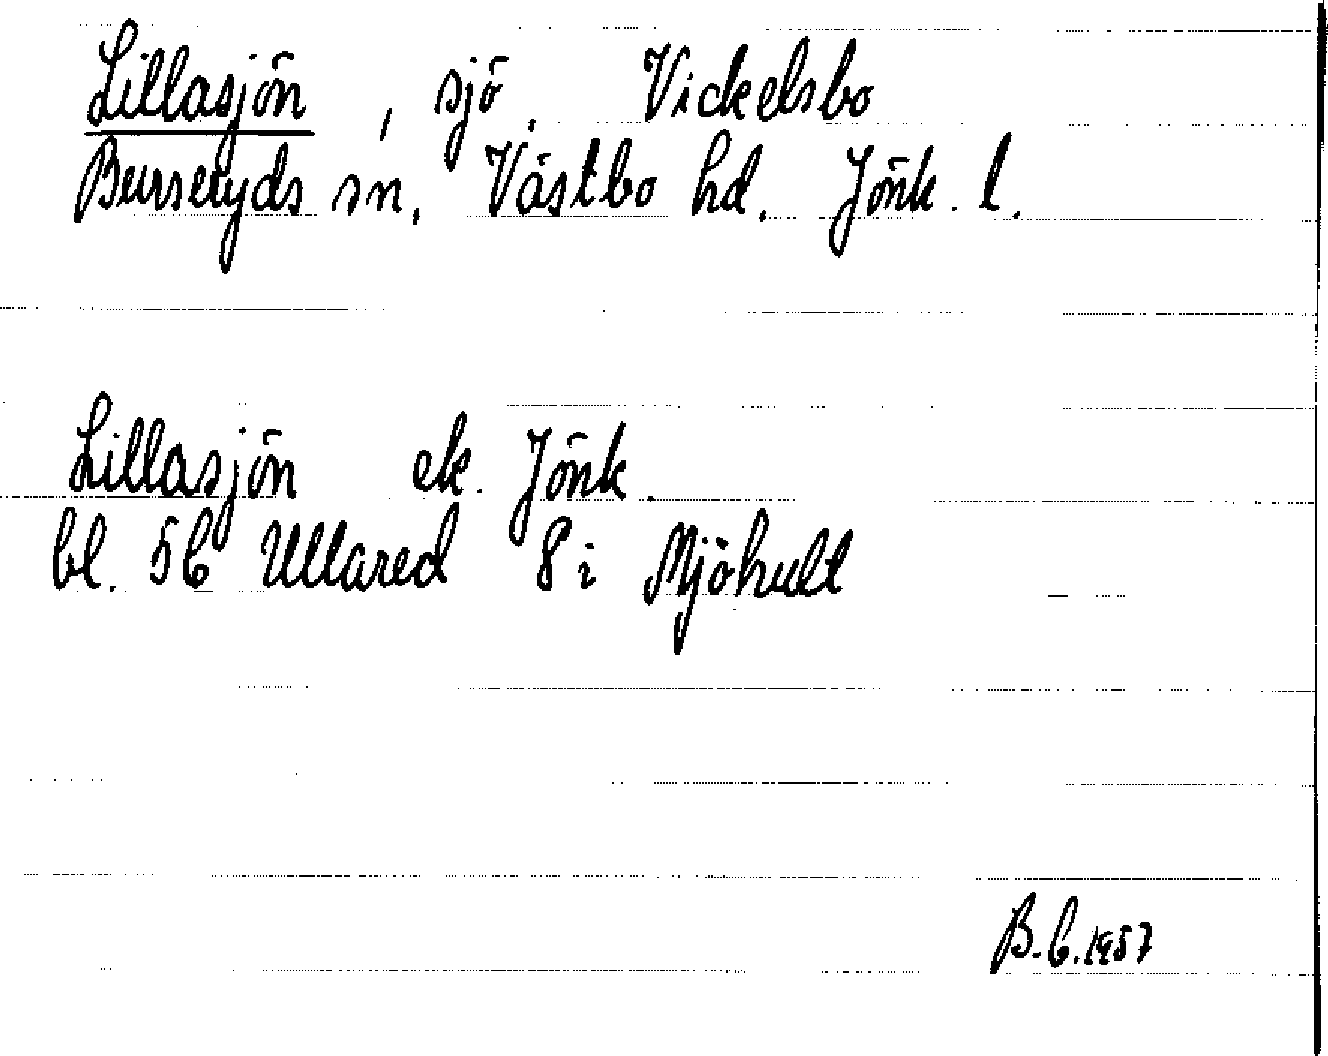 Lillasjön, sjö, Vickelsbo
Burseryds sn, Västbo hd. Jönk. l.
Lillasjön ek. Jönk.
bl. 5C Ullared 8i Mjöhult
B.C. 1957